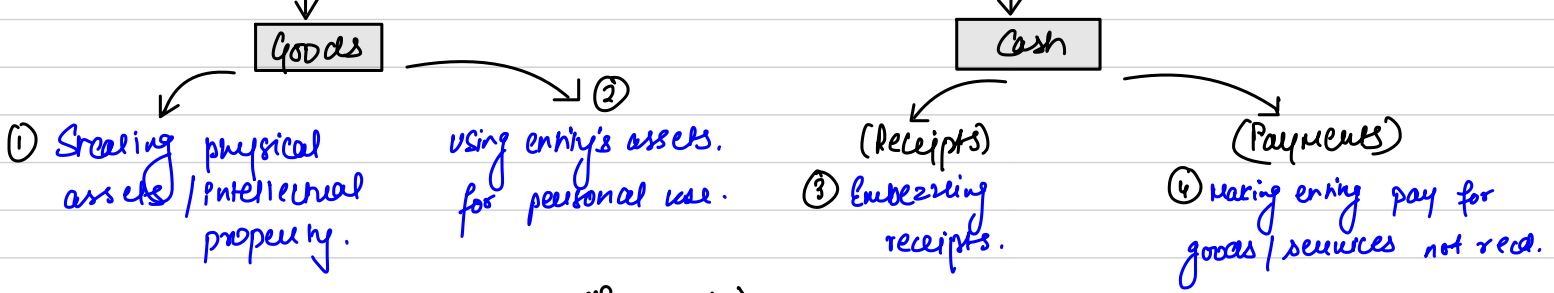 Goods
Cash
②
① Stealing physical
assets / intellectual
property.
using entity's assets.
for personal use.
(Receipts)
③ Embezzling
receipts.
(Payments)
④ Making entity pay for
goods / services not recd.